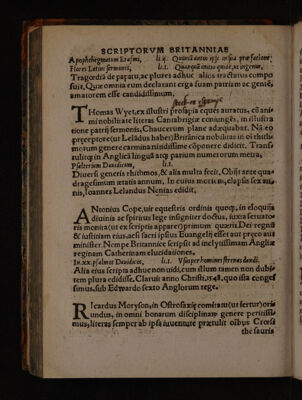 SCRIPTORVM BRITANNIAE
Apophthegmatum Erasmi, li.ij. Quāuis autor ipse in sua præfatione:
Flores Latini sermonis, li.j. Quanquā initio quidē, et ingenue,
Tragœdiā de papatu, ac plures adhuc alios tractatus compo
suit. Quæ omnia eum declarant erga suam patriam ac gentē,
amatorem esse candidissimum,
THomas Wyet, ex illustri prosapia eques auratus, cū ani-
mi nobilitate literas Cantabrigiæ coniungēs, in illustra
tione patrij sermonis, Chaucerum plane adæquabat. Nā eo
præceptore (ut Lelādus habet) Britānica nobilitas in oī rhith-
morum genere carmina nitidissime cōponere didicit. Trans-
tulitq́ in Anglicā linguā atq́ parium numerorum metra,
Psalterium Dauidicum, li.j.
Diuersi generis rhithmos, & alia multa fecit. Obijt ante qua-
dragesimum ætatis annum. In cuius mortem, elapsis sex an-
nis, Ioannes Lelandus Nenias edidit.
ANtonius Cope, uir equestris ordinis quoq́, in eloquijs
diuinis ac spiritus lege insigniter doctus, iuxta seruato
ris monita (ut ex scriptis apparet) primum quærit Dei regnū
& iustitiam eius, ac si sacri ipsius Euangelij esset aut præco aut
minister. Nempe Britannice scripsit ad inclytissimam Angliæ
reginam Catherinam elucidationes,
In.xx.psalmos Dauidicos, li.j. Vsu per homines strenas dandi.
Alia eius scripta adhuc non uidi, cum illum tamen non dubi-
tem plura edidisse. Claruit anno Christi, 1548, quo ista conges
simus, sub Edwardo sexto Anglorum rege.
RIcardus Moryson, in Oxfordiæ comitatu (ut fertur) oriū
undus, in omni bonarum disciplinarum genere peritissi-
mus, literas semper ab ipsa iuuentute prætulit oībus Crœsi
the sauris